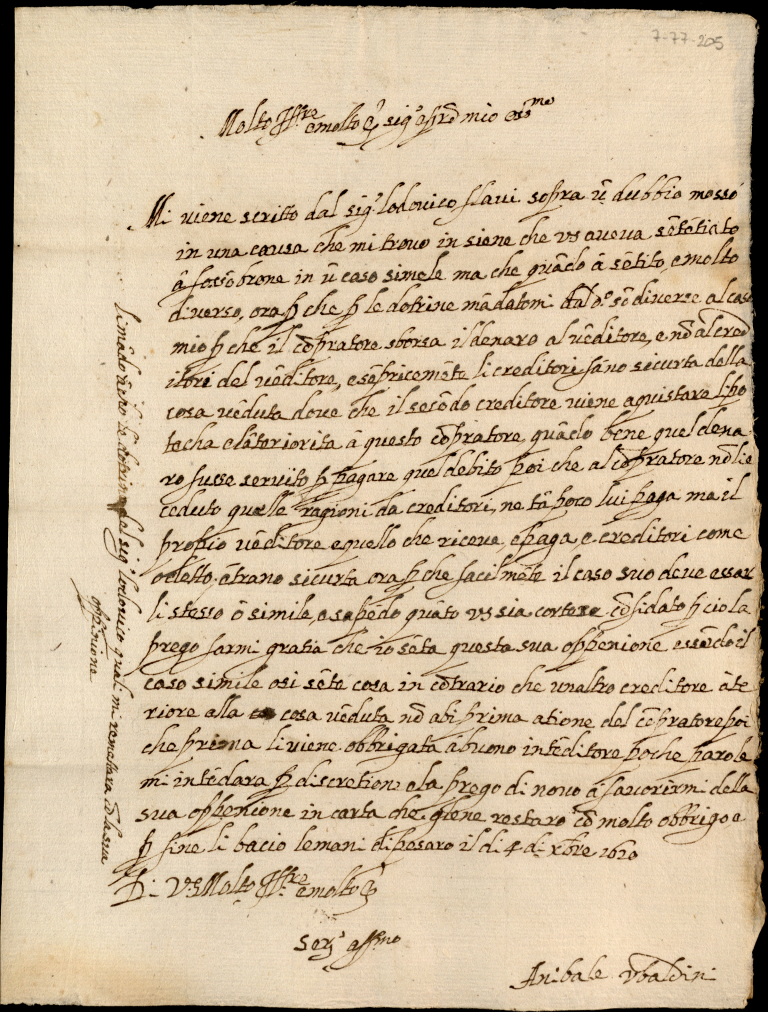 7-77-205
Molto Jll.re e molto ec.te sig.r e pro~n mio oss.mo
Mi viene scritto dal sig.r lodovico flavi sopra ũ dubbio mosso
in una causa che mi trovo in siene che vs aveva sẽtẽtiato
â fossõbrone in ũ caso simele ma che quãdo â sẽtito, e molto
diverso, ora ꝑ che ꝑ le dotrine mãdatomi dal d.o sõ diverse al caso
mio ꝑ che il cõpratore sborsa il denaro al vẽditore, e nõ al cred
itori del vẽditore, e sẽpricemẽte li creditori fãno sicurta della
cosa vẽduta dove che il secõdo creditore viene aquistare l'ipo
techa e l'ãteriorita â questo cõpratore, quãdo bene quel dena
ro fusse servito ꝑ pagare quel debito poi che al cõpratore nõ li e
ceduto quelle ragioni da creditori, ne tã poco lui paga ma il
propio vẽditore e quello che riceve, e paga, e creditori come
o detto ẽtrano sicurta ora ꝑ che facilmẽte il caso suo deve essar
li stesso ô simile, e sapẽdo quãto vs sia cortese cõfidato ꝑ cio la
prego farmi gratia che io sẽta questa sua oppenione essẽdo il
caso simile o si sẽte cosa in cõtrario che un altro creditore ãte
riore alla cosa vẽduta nõ abi prima atione del cõpratore poi
che prima li viene obbrigata â buono intẽditore poche parole
mi intẽdara ꝑ discretione, e la prego di novo â favorirmi della
sua oppenione in carta che gliene restaro cõ molto obbrigo e
ꝑ fine li bacio le mani di pesaro il di 4 di xbre 1620
Di VS Molto Jll.re e molto ec.te
Ser.e aff.mo
Anibale Vbaldini
li mãdo la del sig.r lodovico quali mi remettara cõ la sua
oppenione